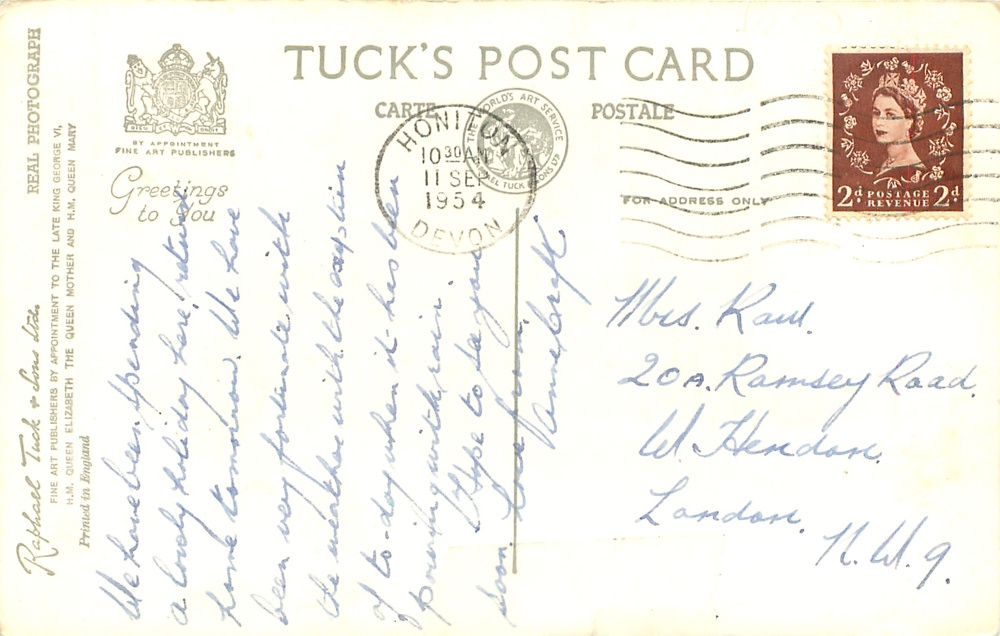 TUCK'S POST CARD
CARTE POSTALE
BY APPOINTMENT
FINE ART PUBLISHERS
Greetings
to You
REAL PHOTOGRAPH
Raphael Tuck & Sons Ltd.
FINE ART PUBLISHERS BY APPOINTMENT TO THE LATE KING GEORGE VI,
H.M. QUEEN ELIZABETH THE QUEEN MOTHER AND H.M. QUEEN MARY
Printed in England
HONITON
10 30 AM
11 SEP
1954
DEVON
THE WORLD'S ART SERVICE
TUCK & SONS LTD
FOR ADDRESS ONLY
2d POSTAGE 2d
REVENUE
We have been spending
a lovely holiday here, return
home tomorrow. We have
been very fortunate with
the weather with the exception
of to-day when it has been
pouring with rain.
Hope to see you
soon. Love from
Mrs. Raw.
20A. Ramsey Road.
W. Hendon.
London.
N.W.9.